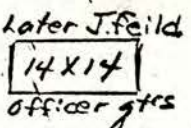 Later J. feild
14 X 14
officer qtrs